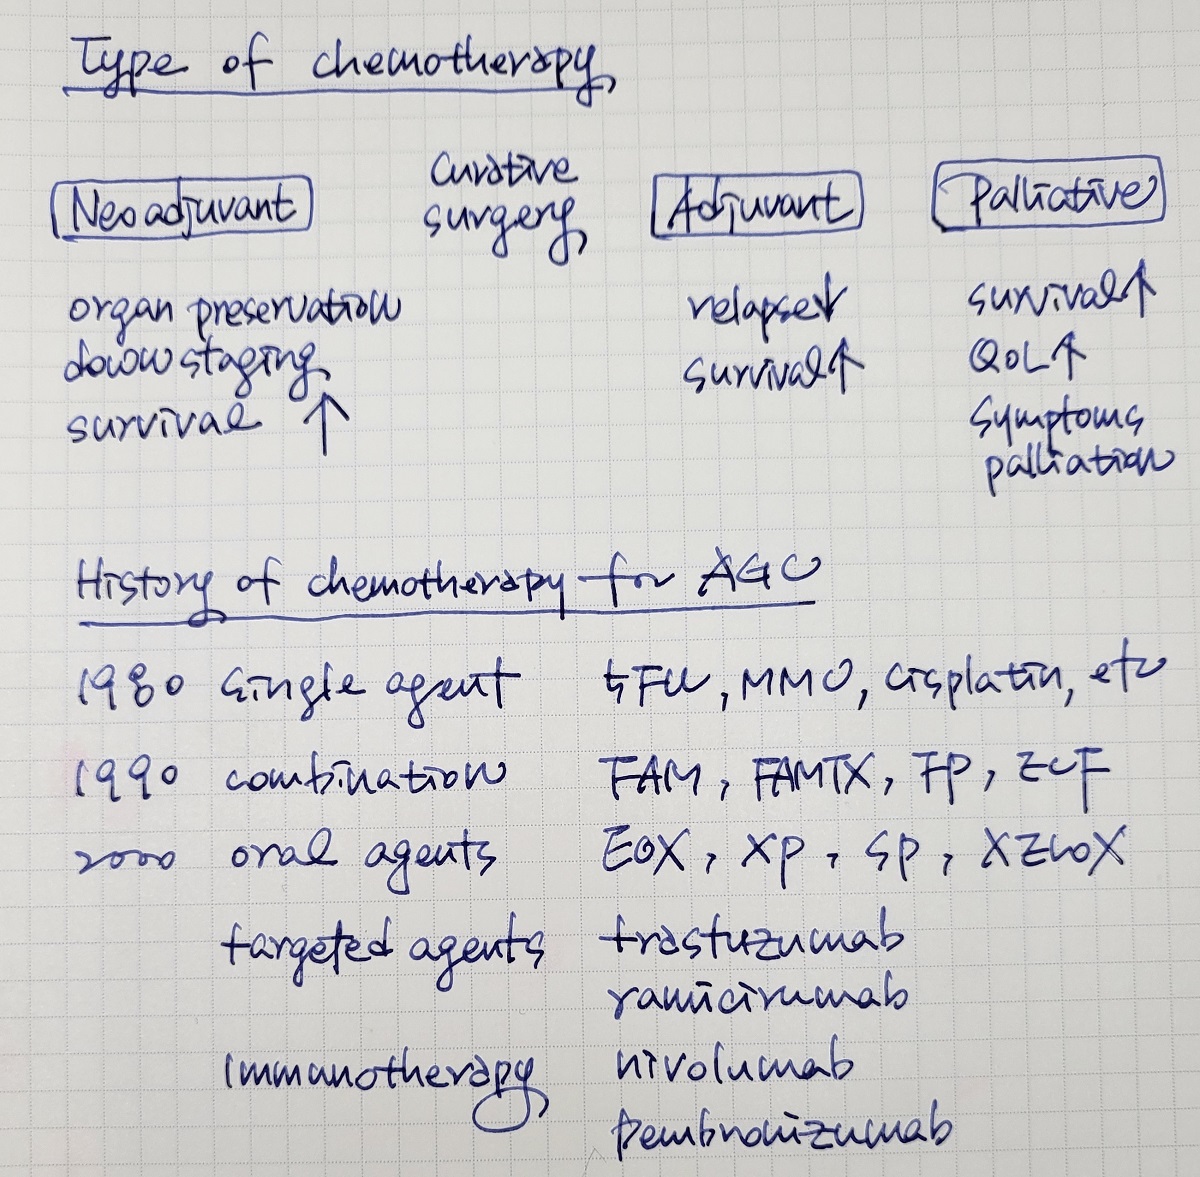 Type of chemotherapy
Neoadjuvant
Curative
surgery
Adjuvant
Palliative
organ preservation
down staging
survival ↑
relapse↓
survival↑
survival↑
QoL↑
symptoms
palliation
History of chemotherapy for AGC
1980 single agent 5FU, MMC, cisplatin, etc
1990 combination FAM, FAMTX, FP, ECF
2000 oral agents EOX, XP, SP, XELOX
targeted agents trastuzumab
ramicirumab
immunotherapy nivolumab
pembronizumab